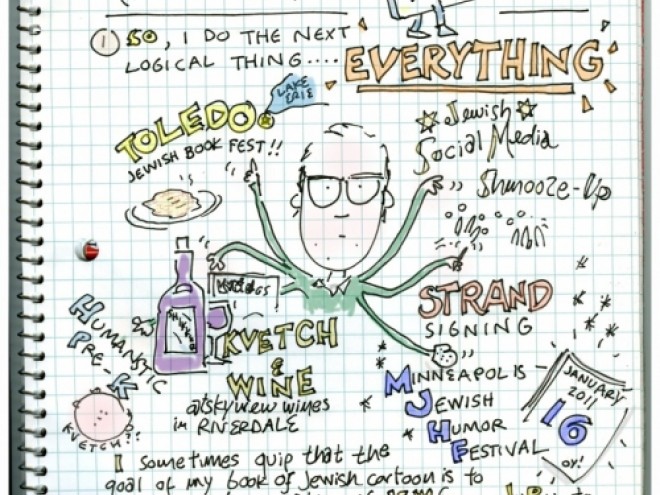 1 SO, I DO THE NEXT
LOGICAL THING....
EVERYTHING
LAKE
ERIE
TOLEDO
JEWISH BOOK FEST!!
Jewish
Social Media
Shmooze-Up
STRAND
SIGNING
KVETCH
&
WINE
@skyview wines
in RIVERDALE
HUMANISTIC
PRE-K
KVETCH?!
MINNEAPOLIS
JEWISH
HUMOR
FESTIVAL
JANUARY
2011
16
OY!
I sometimes quip that the
goal of my book of Jewish cartoons is to